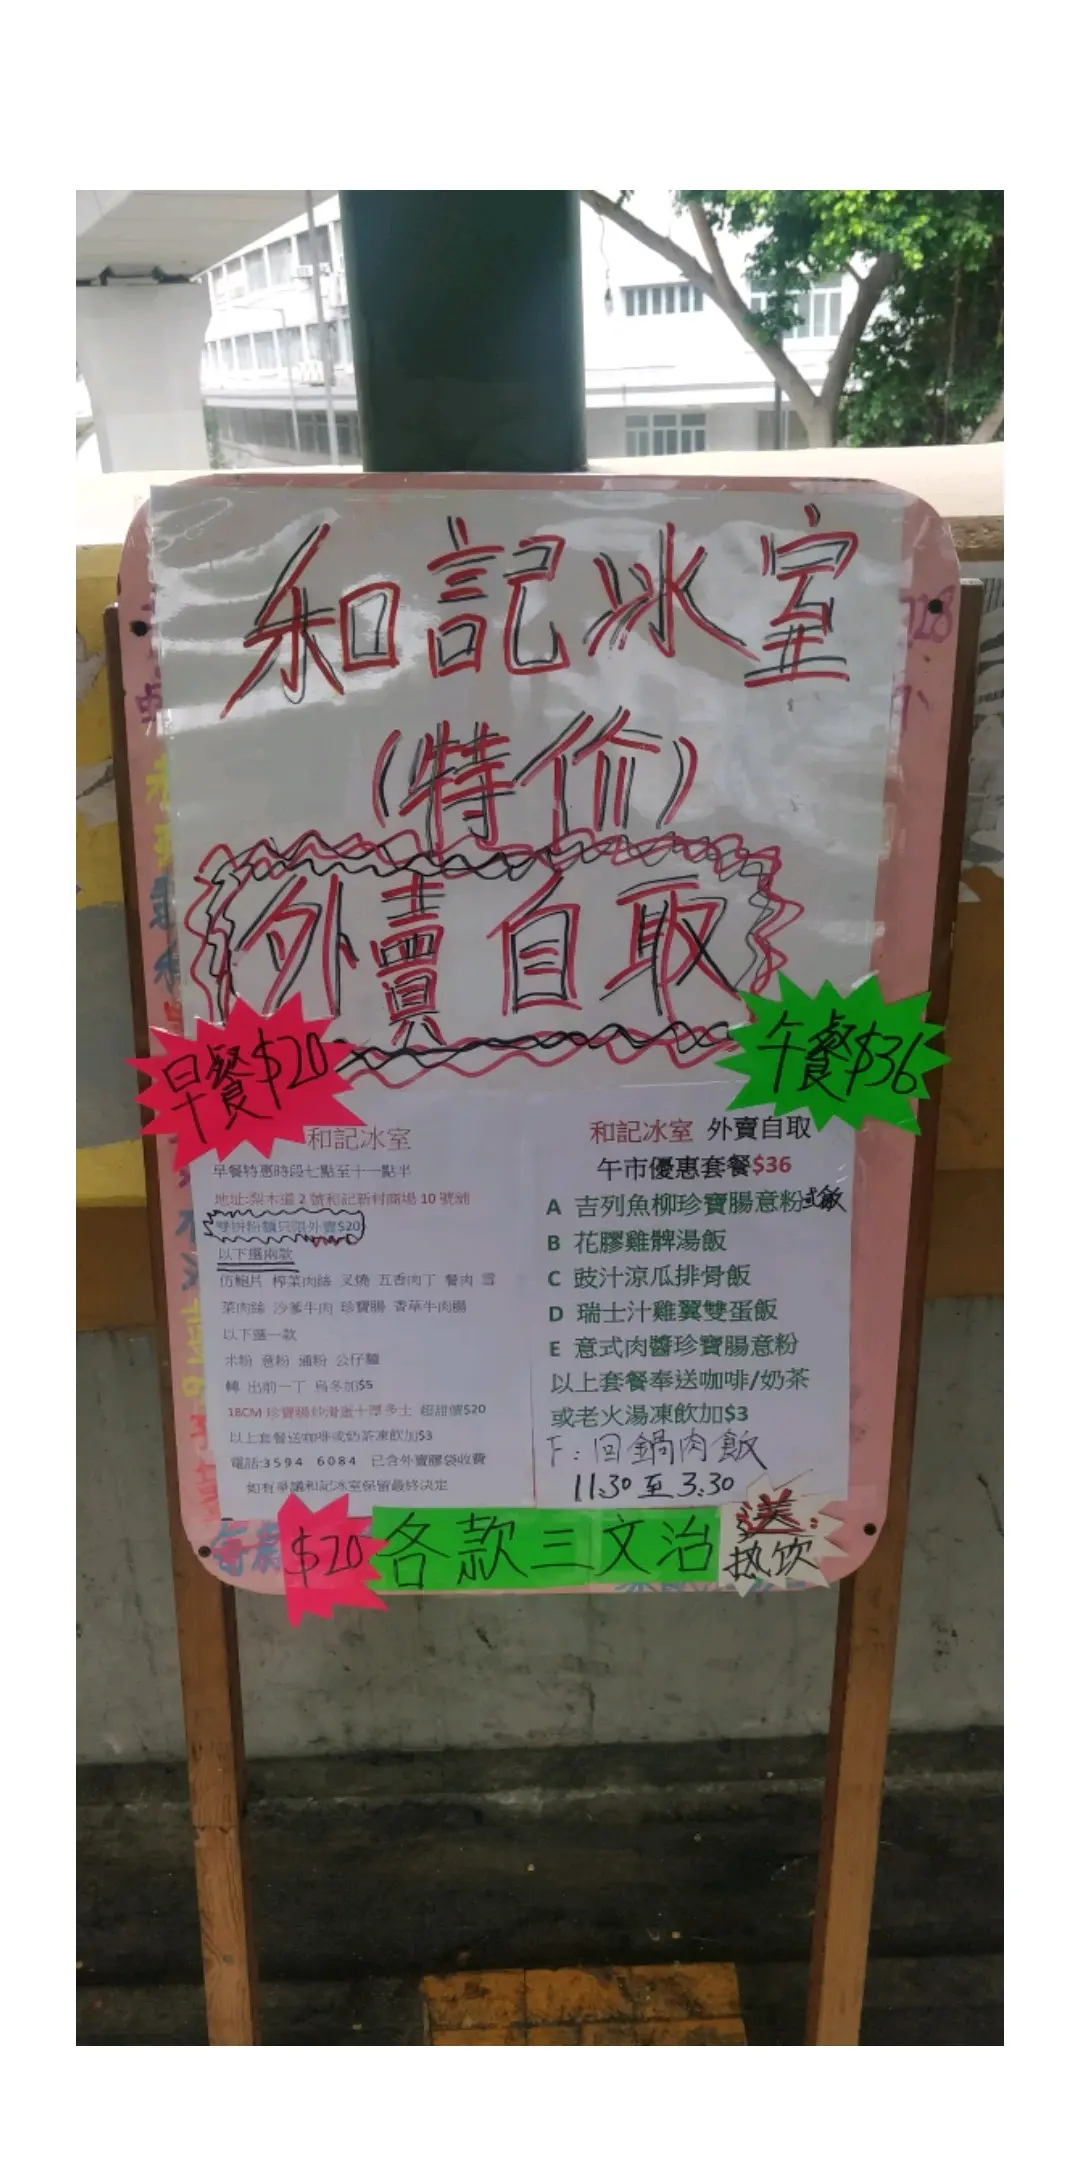 和記冰室
(特价)
外賣自取
早餐$20
午餐$36
和記冰室
早餐特惠時段七點至十一點半
地址:梨木道2號和記新村商場10號舖
雙拼粉麵只限外賣$20
以下選兩款
仿鮑片 榨菜肉絲 叉燒 五香肉丁 餐肉 雪
菜肉絲 沙爹牛肉 珍寶腸 香草牛肉腸
以下選一款
米粉 意粉 通粉 公仔麵
轉 出前一丁 烏冬加$5
18CM 珍寶腸炒滑蛋十厚多士 超甜價$20
以上套餐送咖啡或奶茶凍飲加$3
電話:3594 6084 已含外賣膠袋收費
如有爭議和記冰室保留最終決定
和記冰室 外賣自取
午市優惠套餐$36
A 吉列魚柳珍寶腸意粉或飯
B 花膠雞髀湯飯
C 豉汁涼瓜排骨飯
D 瑞士汁雞翼雙蛋飯
E 意式肉醬珍寶腸意粉
以上套餐奉送咖啡/奶茶
或老火湯凍飲加$3
F:回鍋肉飯
11:30至3:30
$20 各款三文治 送:
热饮